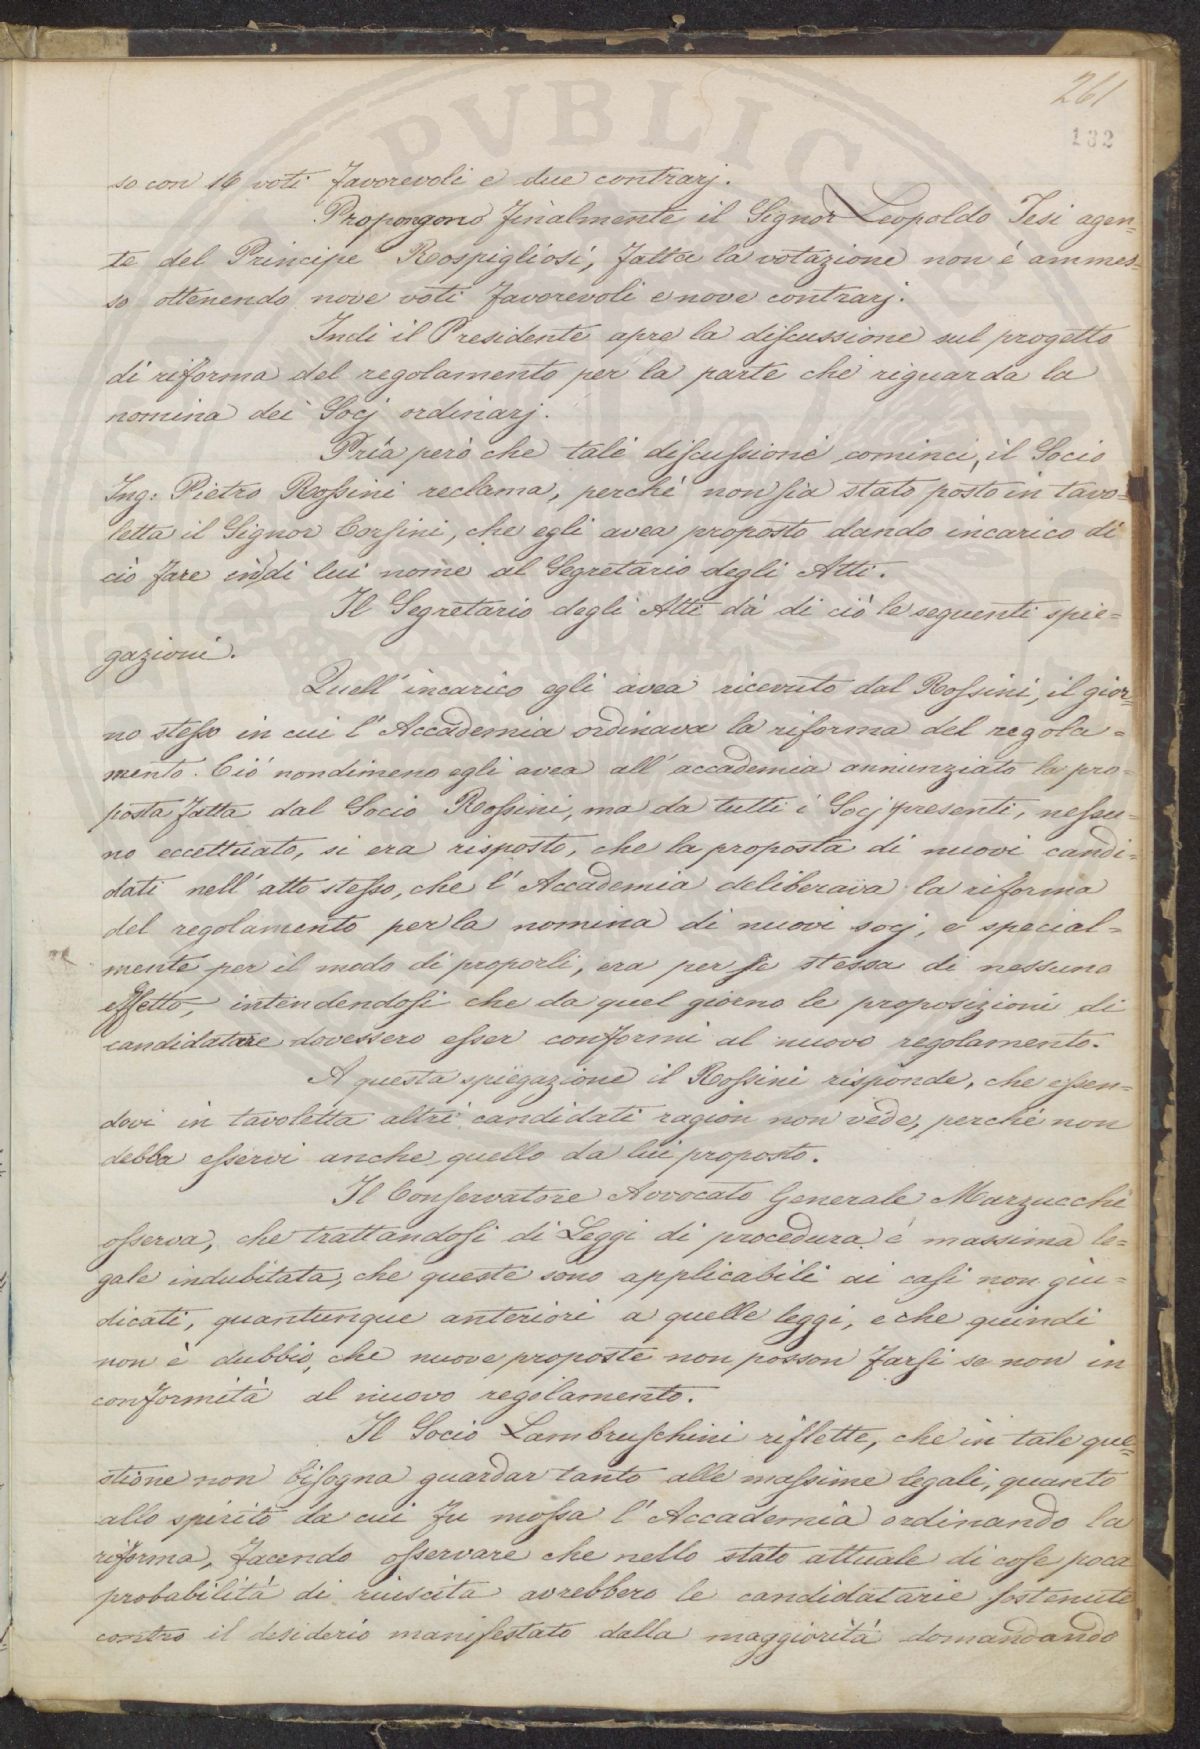 261
132
so con 16 voti favorevoli e due contrarj.
Propongono finalmente il Signor Leopoldo Tesi agen=
te del Principe Rospigliosi, fatta la votazione non è ammes=
so ottenendo nove voti favorevoli e nove contrarj.
Indi il Presidente apre la discussione sul progetto
di riforma del regolamento per la parte che riguarda la
nomina dei Socj ordinarj.
Pria però che tale discussione cominci, il Socio
Ing: Pietro Rossini reclama, perchè non sia stato posto in tavo=
letta il Signor Corsini, che egli avea proposto dando incarico di
ciò fare in di lui nome al Segretario degli Atti.
Il Segretario degli Atti dà di ciò le seguenti spie=
gazioni.
Quell'incarico egli avea ricevuto dal Rossini, il gior=
no stesso in cui l'Accademia ordinava la riforma del regola=
mento. Ciò nondimeno egli avea all'accademia annunziato la pro=
posta fatta dal Socio Rossini, ma da tutti i Socj presenti, nessu=
no eccettuato, si era risposto, che la proposta di nuovi candi=
dati nell'atto stesso, che l'Accademia deliberava la riforma
del regolamento per la nomina di nuovi socj, e special=
mente per il modo di proporli, era per se stessa di nessuno
effetto, intendendosi che da quel giorno le proposizioni di
candidature dovessero esser conformi al nuovo regolamento.
A questa spiegazione il Rossini risponde, che essen=
dovi in tavoletta altri candidati ragion non vede, perchè non
debba esservi anche quello da lui proposto.
Il Conservatore Avvocato Generale Marzucchi
osserva, che trattandosi di Leggi di procedura è massima le=
gale indubitata, che queste sono applicabili ai casi non giu=
dicati, quantunque anteriori a quelle leggi, e che quindi
non è dubbio, che nuove proposte non posson farsi se non in
conformità al nuovo regolamento.
Il Socio Lambruschini riflette, che in tale que=
stione non bisogna guardar tanto alle massime legali, quanto
allo spirito da cui fu mossa l'Accademia ordinando la
riforma, facendo osservare che nello stato attuale di cose poca
probabilità di riuscita avrebbero le candidatarie sostenute
contro il desiderio manifestato dalla maggiorità domandando